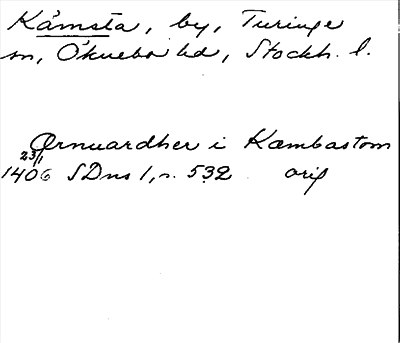 Kåmsta, by, Turinge
sn, Öknebo hd, Stockh. l.
Ørnuardher i Kambastom
23/1
1406 SDns 1, s. 532 orig